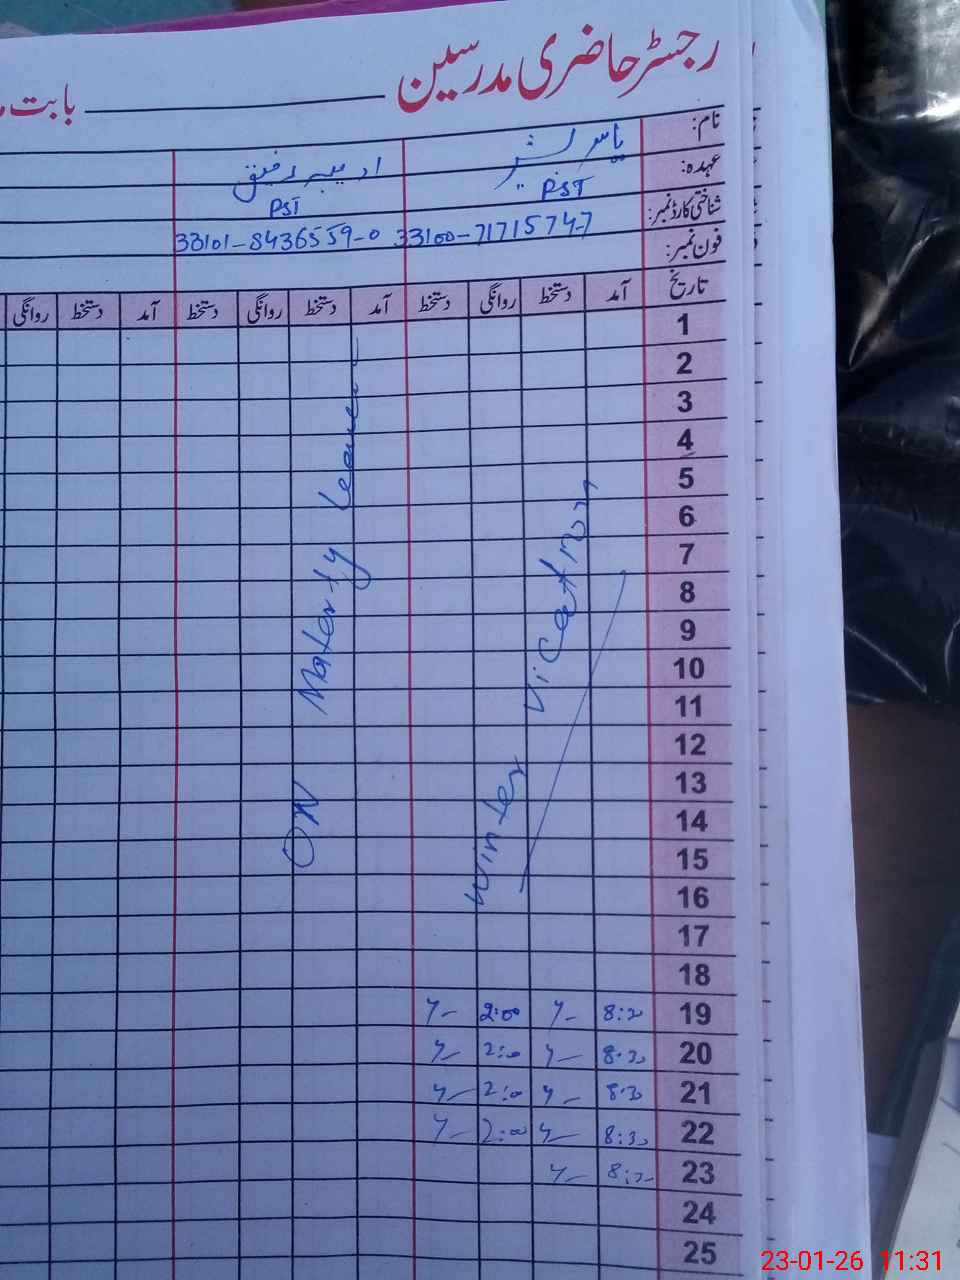 رجسٹر حاضری مدرسین
بابت
نام: یاسر
عہدہ: PST PST
شناختی کارڈ نمبر: 33100-7171574-7 33101-8436559-0
فون نمبر:
تاریخ آمد دستخط روانگی دستخط آمد دستخط روانگی دستخط آمد دستخط روانگی
1
2
3
4
5
6
7
8
9
10
11
12
13
14
15
16
17
18
Winter Vication
ON Materty Leave
19 8:30 2:00
20 8:30 2:00
21 8:30 2:00
22 8:30 2:00
23 8:30
24
25
23-01-26 11:31